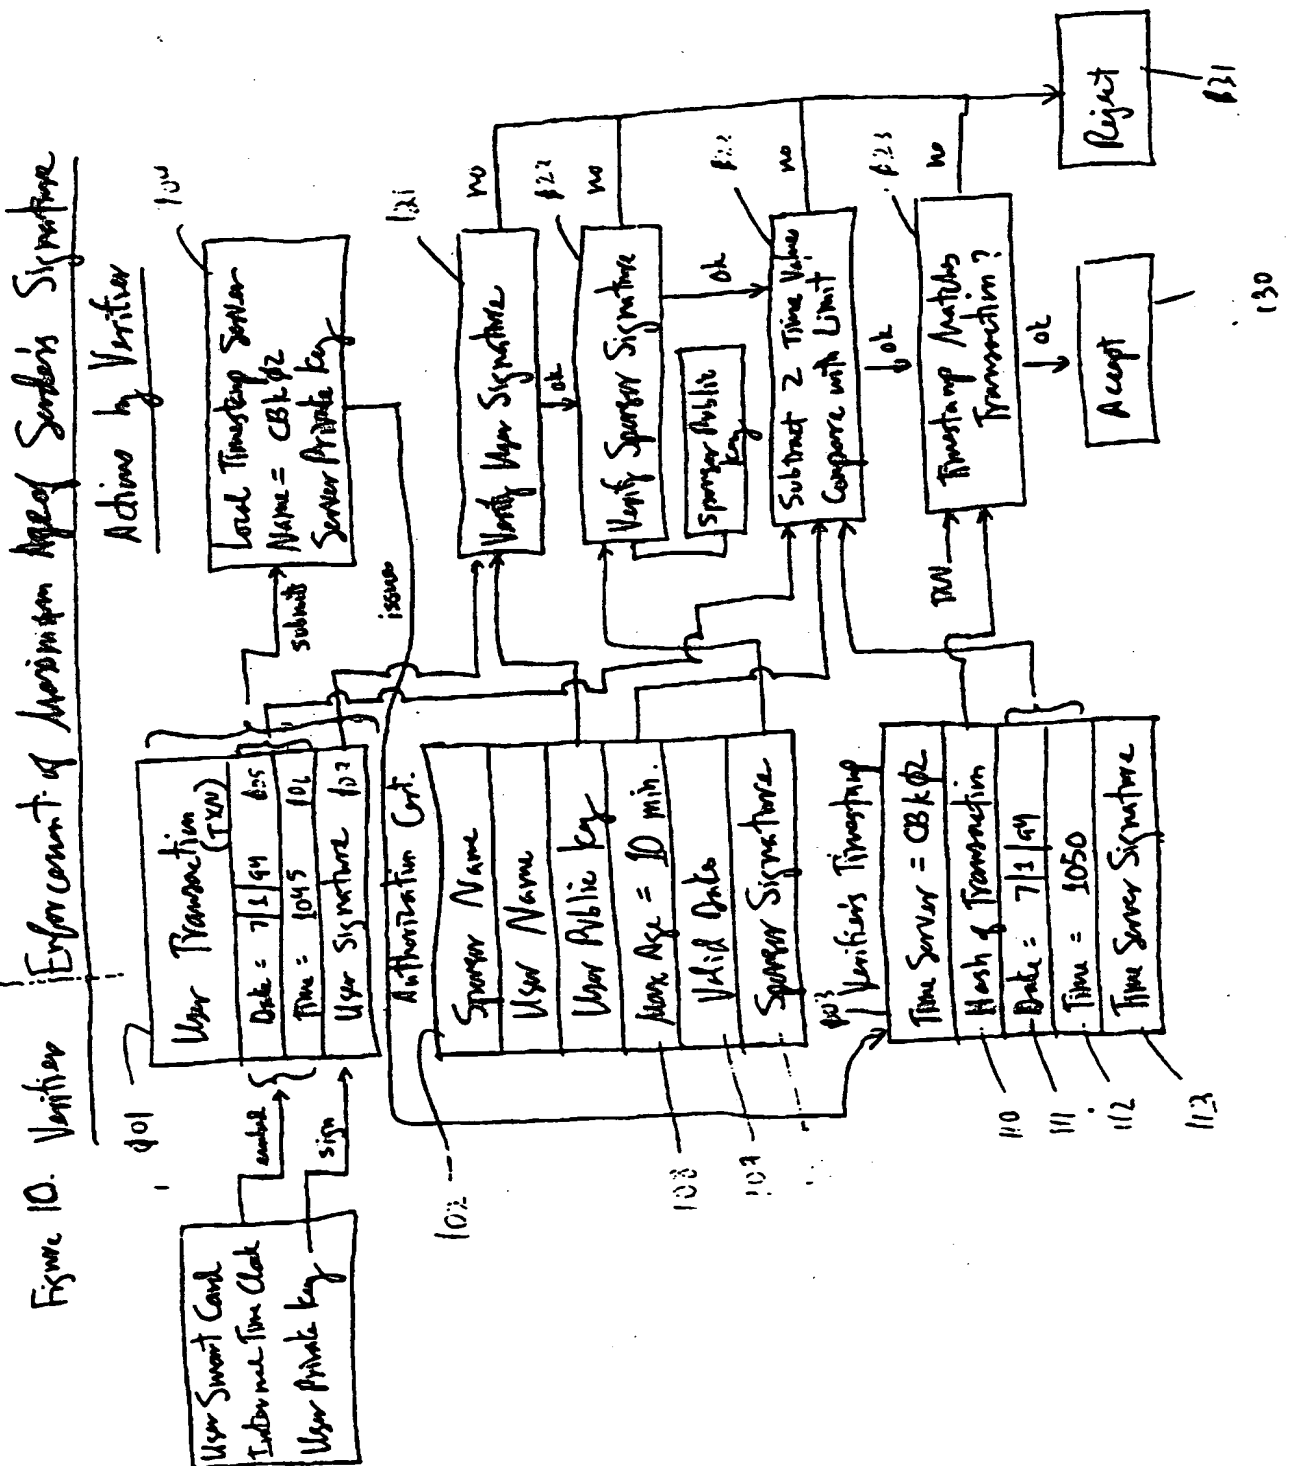 Figure 10. Verifier Enforcement of Maximum Age of Sender's Signature
Actions by Verifier
User Smart Card
Internal Time Clock
User Private Key
embed
sign
101
User Transaction
(TXN)
Date = 7/1/94
Time = 1045
106
User Signature
submits
Local Timestamp Server
Name = CBkϕ2
Server Private Key
issues
Authorization Cert.
102
Sponsor Name
User Name
User Public Key
Max Age = 10 min.
Valid Date
Sponsor Signature
108
107
103
Verifier's Timestamp
Time Server = CBkϕ2
Hash of Transaction
Date = 7/1/94
Time = 1050
Time Server Signature
110
111
112
113
121
Verify User Signature
no
ok
122
Verify Sponsor Signature
no
ok
Sponsor Public
Key
Subtract 2 Time Values
Compare with Limit
no
ok
TXN
123
Timestamp Matches
Transaction?
no
ok
Accept
130
Reject
131